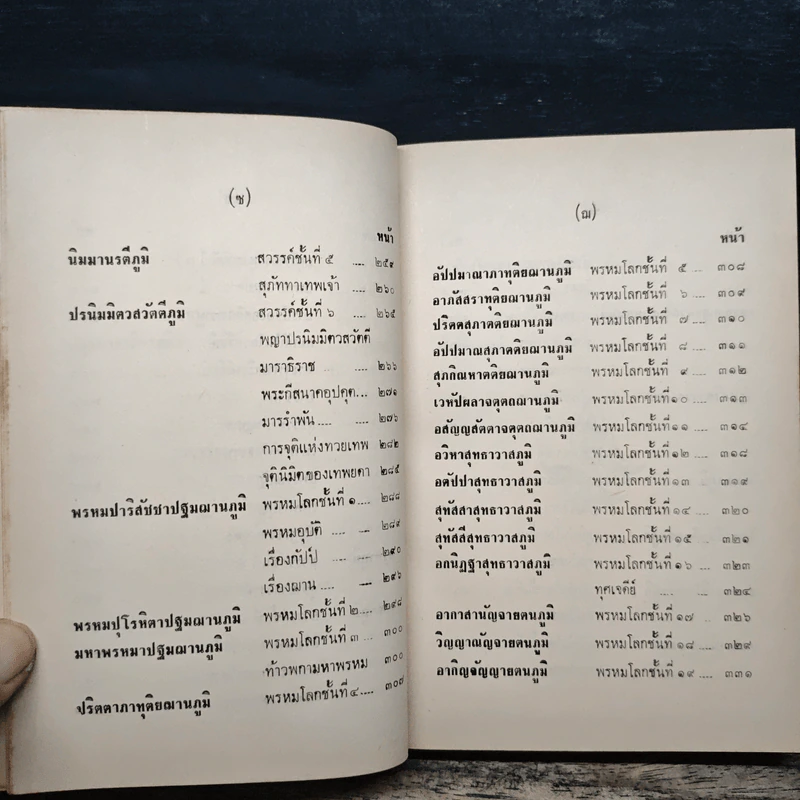 (ซ)
หน้า
นิมมานรดีภูมิ สวรรค์ชั้นที่ ๕ .... ๒๕๙
สุภัททาเทพเจ้า ๒๖๐
ปรนิมมิตวสวัตตีภูมิ สวรรค์ชั้นที่ ๖ .... ๒๖๕
พญาปรนิมมิตวสวัตตี
มาราธิราช .... ๒๖๖
พระกีสนาคอุปคุต... ๒๗๑
มารรำพัน .... .... ๒๗๖
การจุติแห่งทวยเทพ ๒๘๒
จุตินิมิตของเทพยดา ๒๘๕
พรหมปาริสัชชาปฐมฌานภูมิ พรหมโลกชั้นที่ ๑.... ๒๘๘
พรหมอุบัติ .... .... ๒๘๙
เรื่องกัปป์ .... .... ๒๙๐
เรื่องฌาน .... .... ๒๙๖
พรหมปุโรหิตาปฐมฌานภูมิ พรหมโลกชั้นที่ ๒.... ๒๙๘
มหาพรหมาปฐมฌานภูมิ พรหมโลกชั้นที่ ๓ .... ๓๐๐
ท้าวพกามหาพรหม ๓๐๐
ปริตตาภาทุติยฌานภูมิ พรหมโลกชั้นที่ ๔.... ๓๐๗
(ฌ)
หน้า
อัปปมาณาภาทุติยฌานภูมิ พรหมโลกชั้นที่ ๕ .... ๓๐๘
อาภัสสราทุติยฌานภูมิ พรหมโลกชั้นที่ ๖ .... ๓๐๙
ปริตตสุภาตติยฌานภูมิ พรหมโลกชั้นที่ ๗ .... ๓๑๐
อัปปมาณสุภาตติยฌานภูมิ พรหมโลกชั้นที่ ๘ .... ๓๑๑
สุภกิณหาตติยฌานภูมิ พรหมโลกชั้นที่ ๙ .... ๓๑๒
เวหัปผลาจตุตถฌานภูมิ พรหมโลกชั้นที่๑๐ .... ๓๑๓
อสัญญสัตตาจตุตถฌานภูมิ พรหมโลกชั้นที่๑๑ .... ๓๑๔
อวิหาสุทธาวาสภูมิ พรหมโลกชั้นที่ ๑๒ .... ๓๑๘
อตัปปาสุทธาวาสภูมิ พรหมโลกชั้นที่ ๑๓ .... ๓๑๙
สุทัสสาสุทธาวาสภูมิ พรหมโลกชั้นที่ ๑๔ .... ๓๒๐
สุทัสสีสุทธาวาสภูมิ พรหมโลกชั้นที่ ๑๕ .... ๓๒๑
อกนิฏฐาสุทธาวาสภูมิ พรหมโลกชั้นที่ ๑๖ .... ๓๒๓
ทุศเจดีย์ .... .... ๓๒๔
อากาสานัญจายตนภูมิ พรหมโลกชั้นที่ ๑๗ .... ๓๒๖
วิญญาณัญจายตนภูมิ พรหมโลกชั้นที่ ๑๘ .... ๓๒๙
อากิญจัญญายตนภูมิ พรหมโลกชั้นที่ ๑๙ .... ๓๓๑